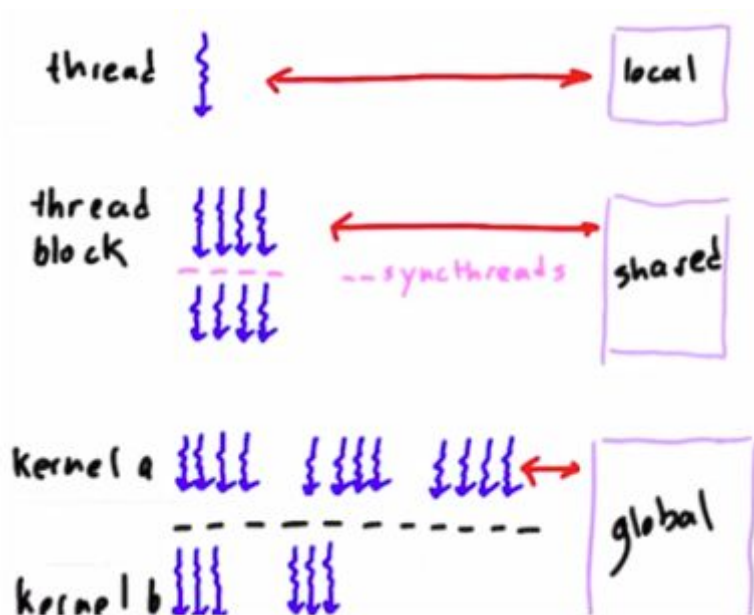 thread
local
thread
block
--syncthreads
shared
kernel a
global
kernel b